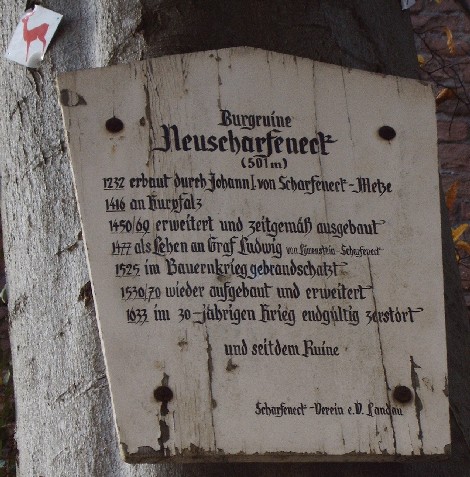 Burgruine
Neuscharfeneck
(501m)
1232 erbaut durch Johann I. von Scharfeneck-Metze
1416 an Kurpfalz
1450/69 erweitert und zeitgemäß ausgebaut
1477 als Lehen an Graf Ludwig von Löwenstein-Scharfeneck
1525 im Bauernkrieg gebrandschatzt
1530/70 wieder aufgebaut und erweitert
1633 im 30-jährigen Krieg endgültig zerstört
und seitdem Ruine
Scharfeneck-Verein e.V. Landau